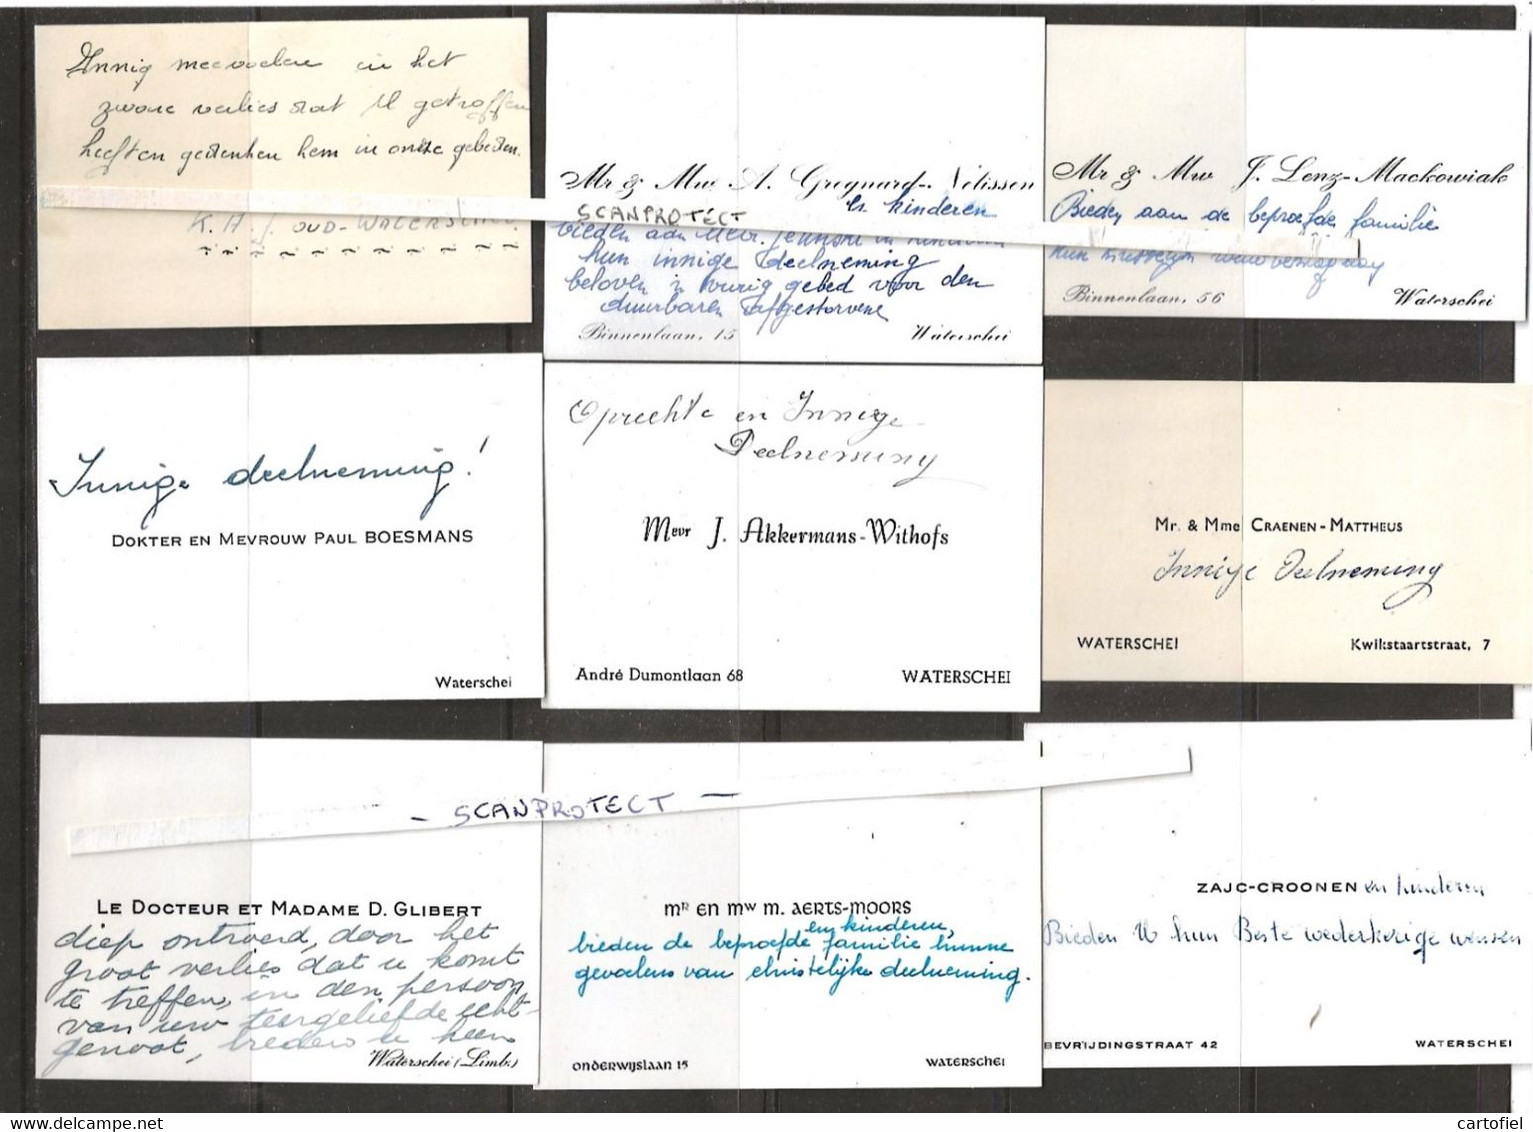 Innig meevoelen in het
zware verlies dat U getroffen
heeft en gedenken hem in onze gebeden.
K.A.J. OUD-WATERSCHEI
Mr & Mw A. Gregnard-Nelissen
en kinderen
SCANPROTECT
bieden aan Mevr.
hun innige deelneming
beloven u vurig gebed voor den
duurbaren afgestorvene
Binnenlaan, 15 Waterschei
Mr & Mw J. Lenz-Mackowiak
Bieden aan de beproefde familie
Binnenlaan, 56 Waterschei
Innige deelneming!
DOKTER EN MEVROUW PAUL BOESMANS
Waterschei
Oprechte en Innige
Deelneming
Mevr J. Akkermans-Withofs
André Dumontlaan 68 WATERSCHEI
Mr. & Mme CRAENEN-MATTHEUS
Innige Deelneming
WATERSCHEI Kwikstaartstraat, 7
- SCANPROTECT -
LE DOCTEUR ET MADAME D. GLIBERT
diep ontroerd, door het
groot verlies dat u komt
te treffen, in den persoon
van uw teergeliefde echt-
genoot, bieden u hun
Waterschei (Limb.)
Mr EN MW M. AERTS-MOORS
en kinderen,
bieden de beproefde familie hunne
gevoelens van christelijke deelneming.
ONDERWIJSLAAN 15 WATERSCHEI
ZAJC-CROONEN en kinderen
Bieden U hun Beste wederkerige wensen
BEVRIJDINGSTRAAT 42 WATERSCHEI
www.delcampe.net
cartofiel